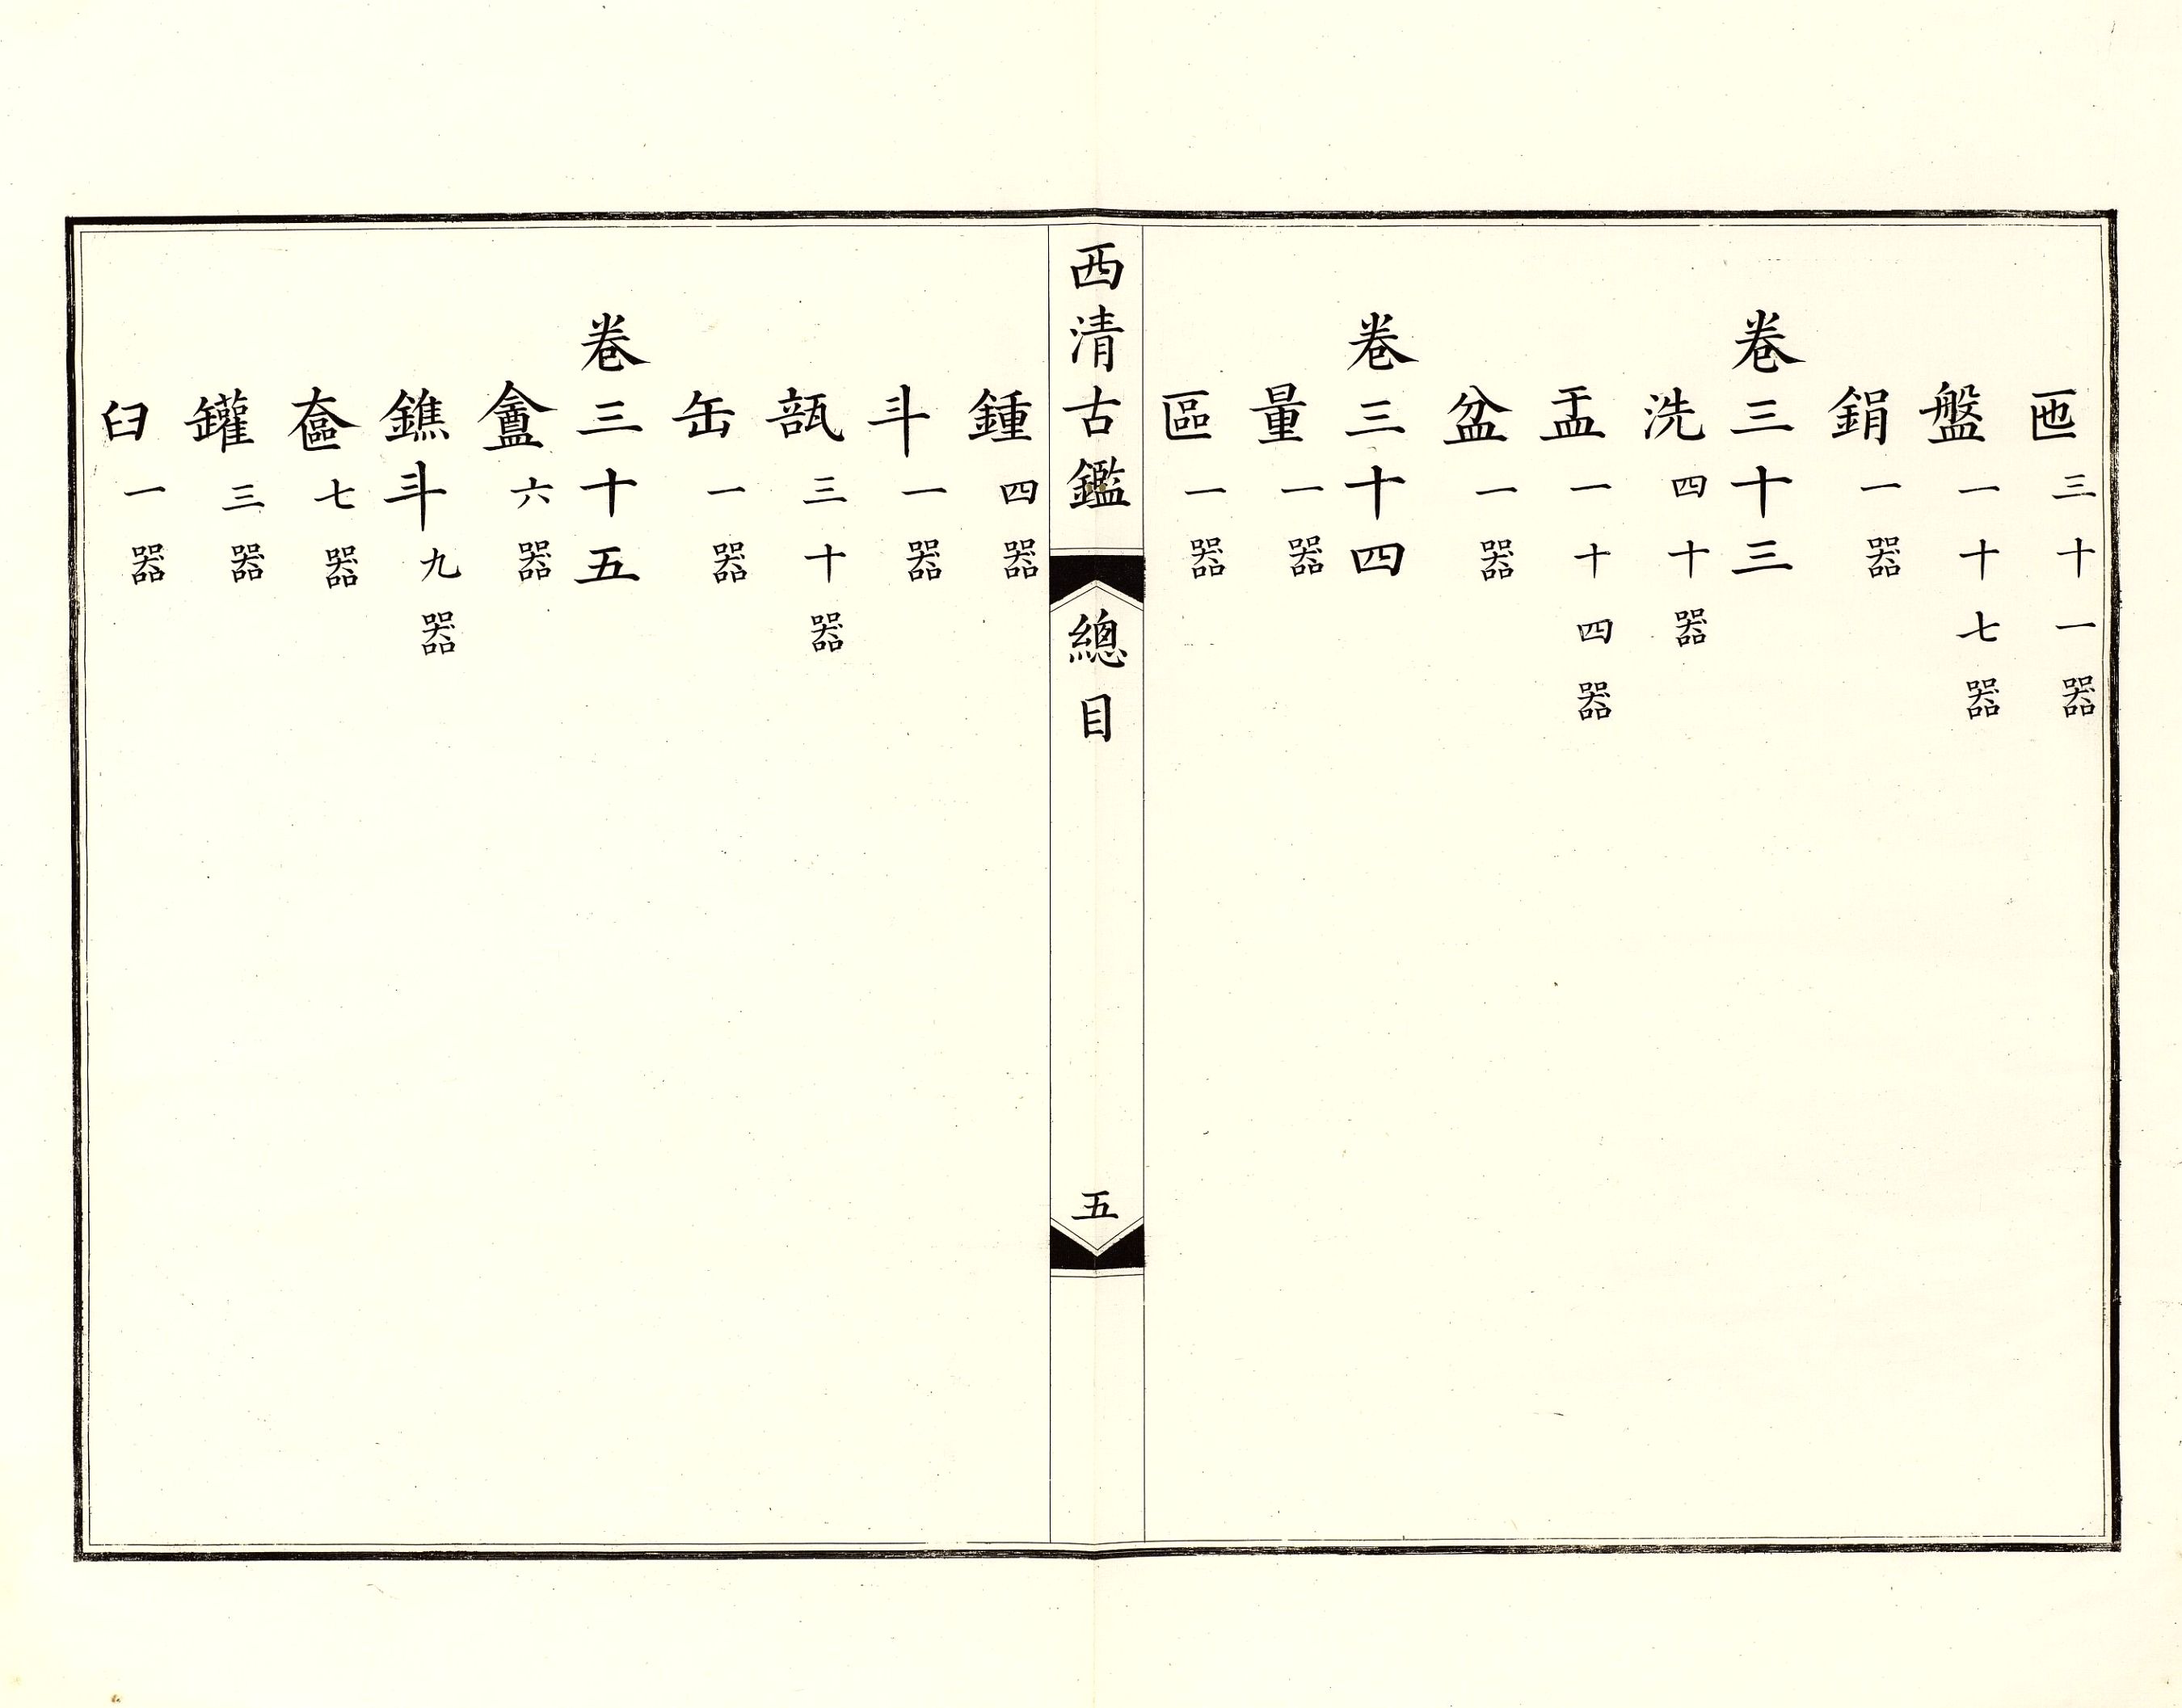 匜三十一器
盤一十七器
鋗一器
卷三十三
洗四十器
盂一十四器
盆一器
卷三十四
量一器
區一器
西清古鑑 總目 五
鍾四器
斗一器
瓿三十器
缶一器
卷三十五
盒六器
鐎斗九器
奩七器
罐三器
臼一器